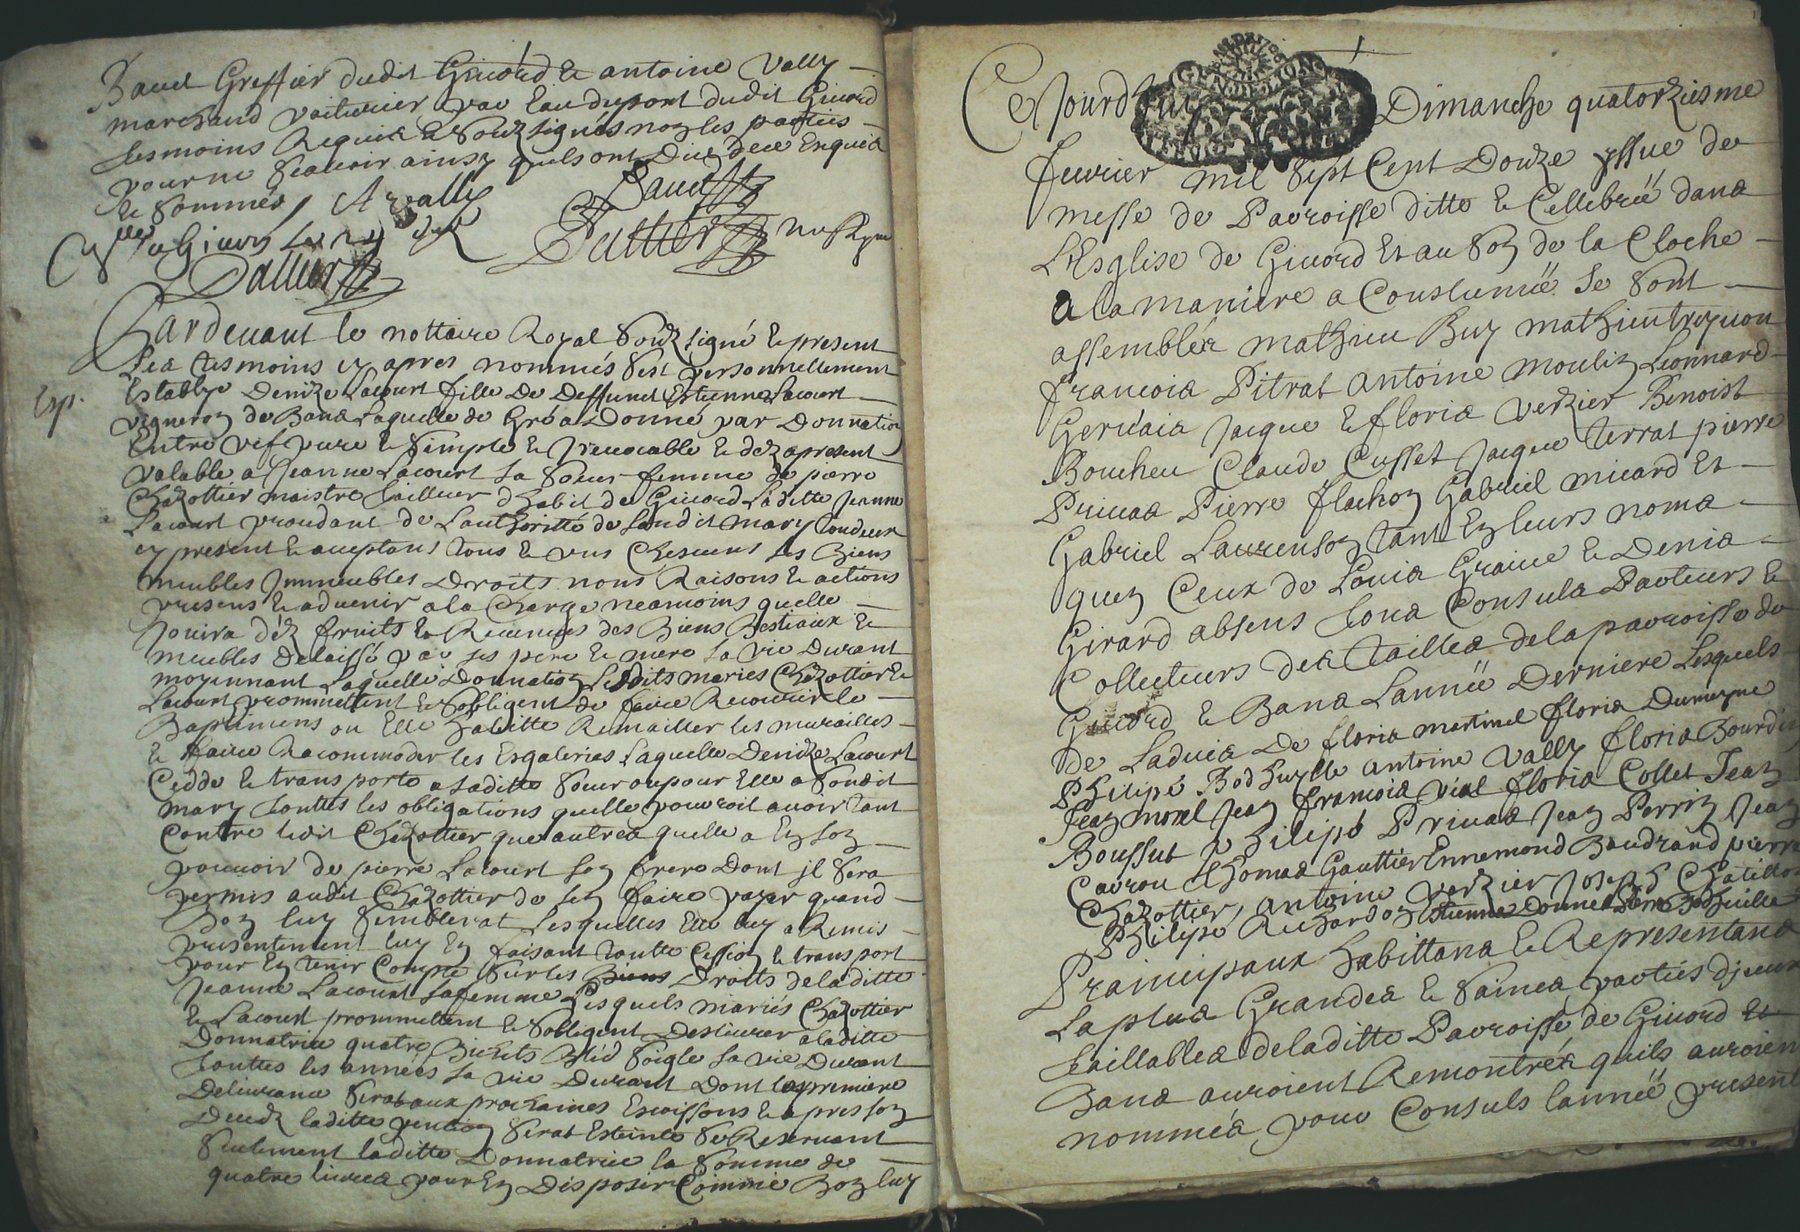 Baud Greffier dudit Giuord & antoine Vally
marchand voiturier par Eau dupont dudit Giuord
tesmoins Requis & soubzsignés non les parties
pour ne scauoir ainsy quils ont Dit de ce Enquis
& sommés / A vally
Baud
Dallier
Par deuant le nottaire Royal soubz signé & present
les tesmoins cy apres nommés s'est personnellement
Establye Denize Lacourt fille de Deffunct Estienne Lacourt
Esp.
vigneron de Bans Laquelle de Gré a Donné par Donnation
Entre vif pure & simple & jrreuocable & dez apresent
valable a Jeanne Lacourt sa soeur femme de pierre
Chazottier maistre tailleur d'habit de Giuord Laditte Jeanne
Lacourt procedant de Lauthoritté de sondit mary
cy present & acceptant tous & uns Chescuns ses Biens
meubles jmmeubles Droits noms Raisons & actions
presens & aduenir a la Charge neamoins quelle
Jouira déz fruits & Reuenus des Biens Bestiaux &
meubles delaissé par ses pere & mere sa vie Durant
moyennant Laquelle Donnation Lesdits mariés Chazottier &
Lacourt promettent & s'obligent de faire Recouurir le
Baptimens ou Elle habitte Remailler les murailles
& faire Racommoder les Esgaleries Laquelle Denize Lacourt
Cedde & transporte a saditte soeur ou pour Elle a sondit
mary touttes les obligations quelle pourroit auoir tant
Contre ledit Chazottier que autres quelle a En son
pouuoir de pierre Lacourt son frere Dont il sera
permis audit Chazottier de sen faire payer quand
Bon luy semblerat Lesquelles Elle luy a Remis
presentement luy En faisant toutte Cession & transport
pour En tenir Compte sur les Biens Droits de laditte
Jeanne Lacourt sa femme Lesquels mariés Chazottier
& Lacourt promettent & s'obligent Desliurer a laditte
Donnatrice quatre Bichets Bled soigle sa vie Durant
touttes les années sa vie Durant Dont la premiere
Deliurance serat aux prochaines & apres son
Decedz laditte pention serat Esteinte se Reseruant
seulement laditte Donnatrice la somme de
quatre liures pour En Disposer Comme Bon luy
Ce Jourdhuy Dimanche quatorziesme
feurier mil sept Cent Douze yssue de
messe de Parroisse ditte & Cellebrée dans
L'Esglise de Giuord Et au son de la Cloche
a la maniere a Coustumée se sont
assemblés mathieu Buy mathieu troynon
francois Pitrat Antoine moulin Leonnard
Geruais Jacque & floris verzier Benoist
Boucheu Claude Cusset Jacque terrat pierre
Priuas Pierre flachon Gabriel micard Et
Gabriel Laurenson tant En leurs noms
quen Ceux de Louis Graine & Denis
Girard absens tous Consuls Pasteurs &
Collecteurs des tailles de la parroisse de
Giuord & Bans Lannée Derniere Lesquels
de Laduis De floris martinel floris Dumoyne
Philipe Bodhuylle Antoine Vally floris Bourdin
Jean morel Jean francois vial floris Collet Jean
Boussut Philipe Priuas Jean Perrin Jean
Cauron thomas Gauttier Ennemond Baudrand pierre
Chazottier, antoine verzier Joseph Chatillon
Philipe Richardon Etienne Bodhuille
Principaux habittans & Representans
La plus Grandes & saines parties djceux
taillables de laditte Parroisse de Giuord Et
Bans auroient Remontrés quils auroien
nommés pour Consuls lannée present